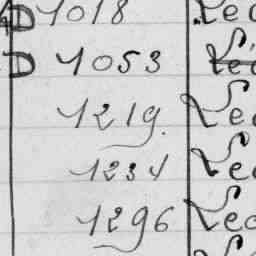 D 1018 Lec
D 1053 Lec
1219. Lec
1234 Lec
1296 Lec